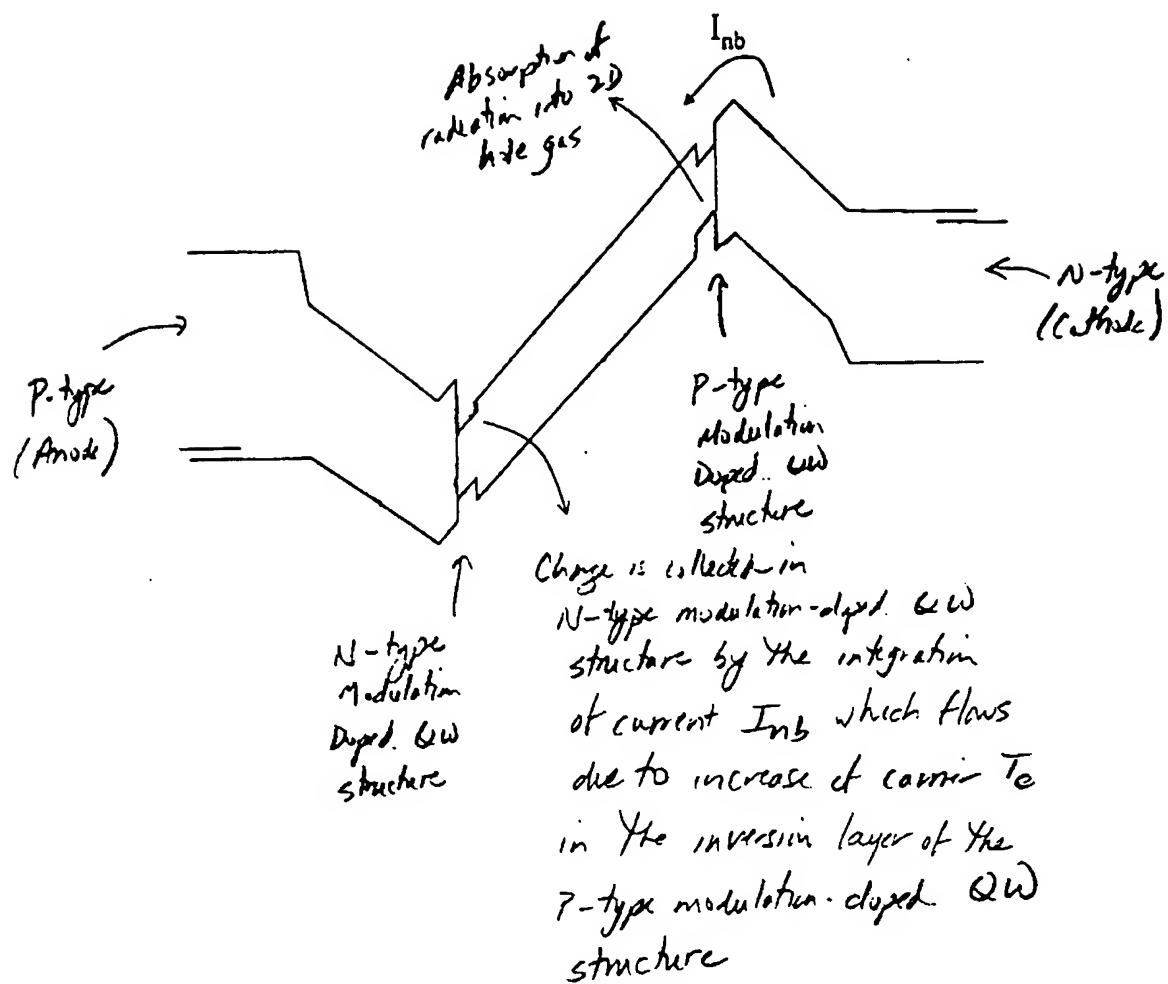 Absorption of
radiation into 2D
hole gas
Inb
P-type
(Anode)
N-type
(Cathode)
P-type
Modulation
Doped. QW
structure
N-type
Modulation
Doped. QW
structure
Charge is collected in
N-type modulation-doped. QW
structure by the integration
of current Inb which flows
due to increase of carrier Te
in the inversion layer of the
P-type modulation-doped. QW
structure